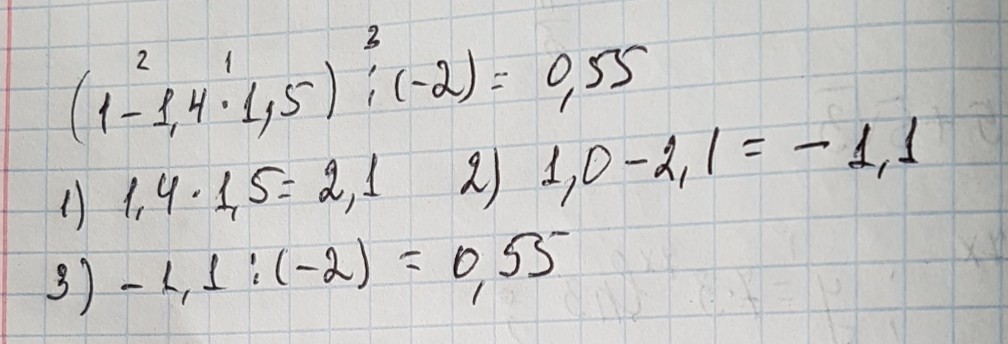 2 1 3
(1 - 1,4 · 1,5) : (-2) = 0,55
1) 1,4 · 1,5 = 2,1 2) 1,0 - 2,1 = - 1,1
3) - 1,1 : (-2) = 0,55